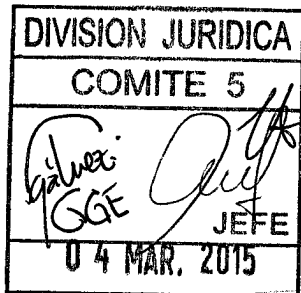 DIVISION JURIDICA
COMITE 5
Gálvez
GGE
JEFE
0 4 MAR. 2015